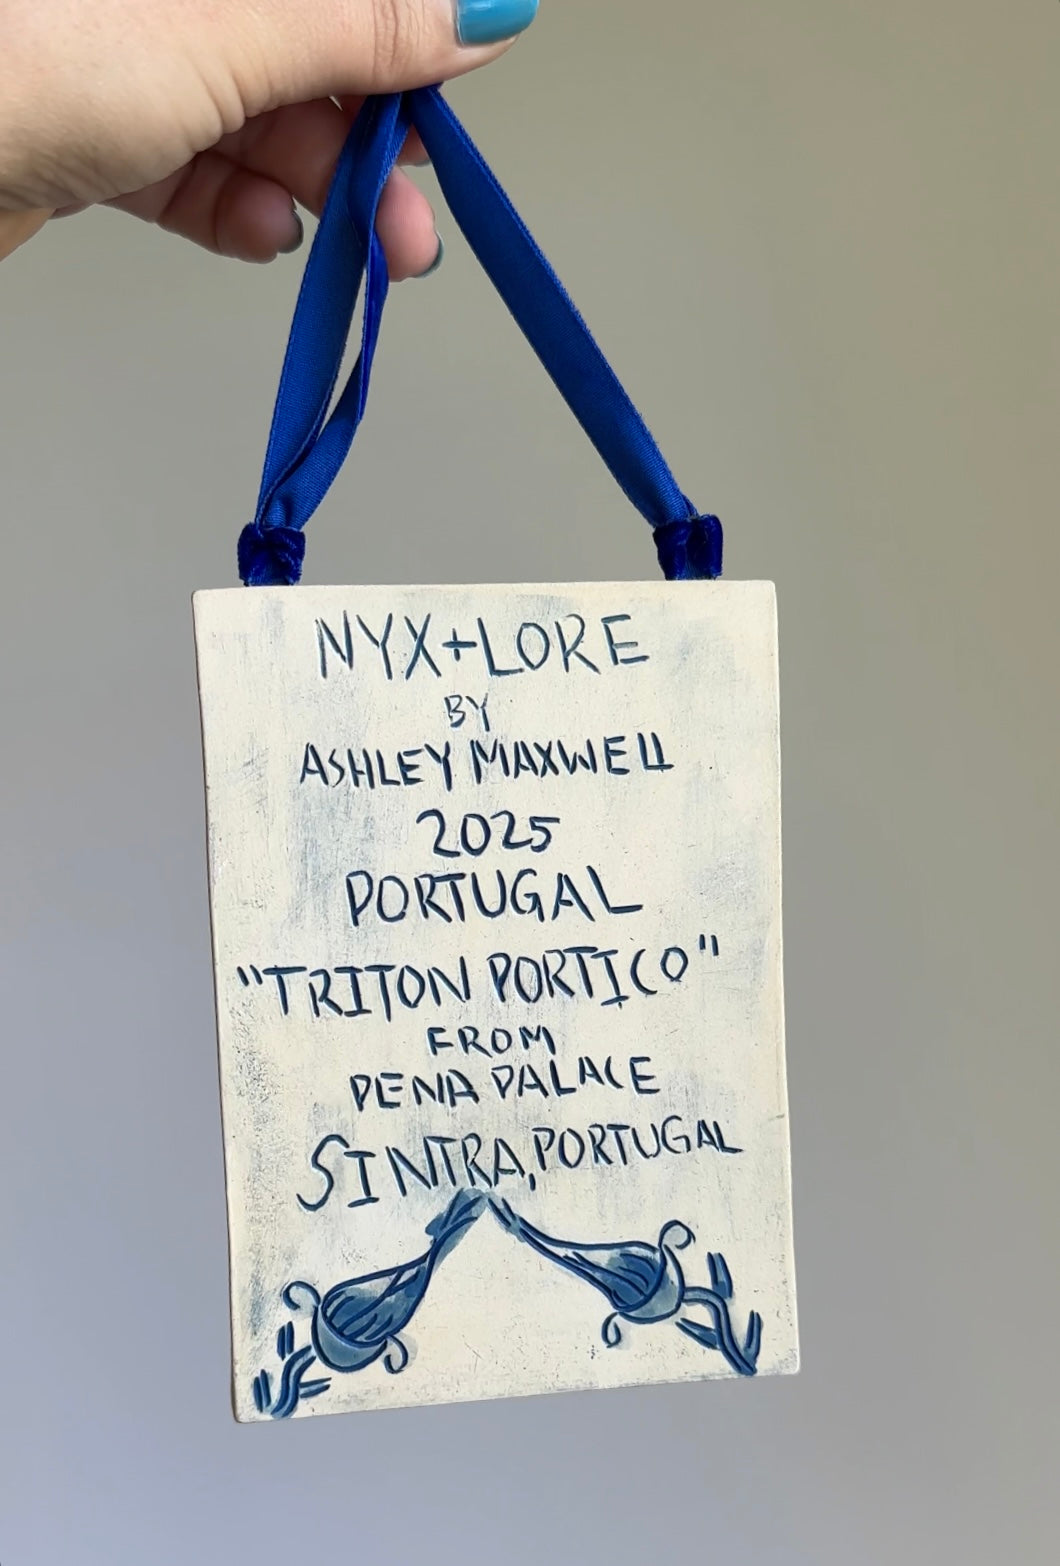 NYX+LORE
BY
ASHLEY MAXWELL
2025
PORTUGAL
"TRITON PORTICO"
FROM
PENA PALACE
SINTRA, PORTUGAL